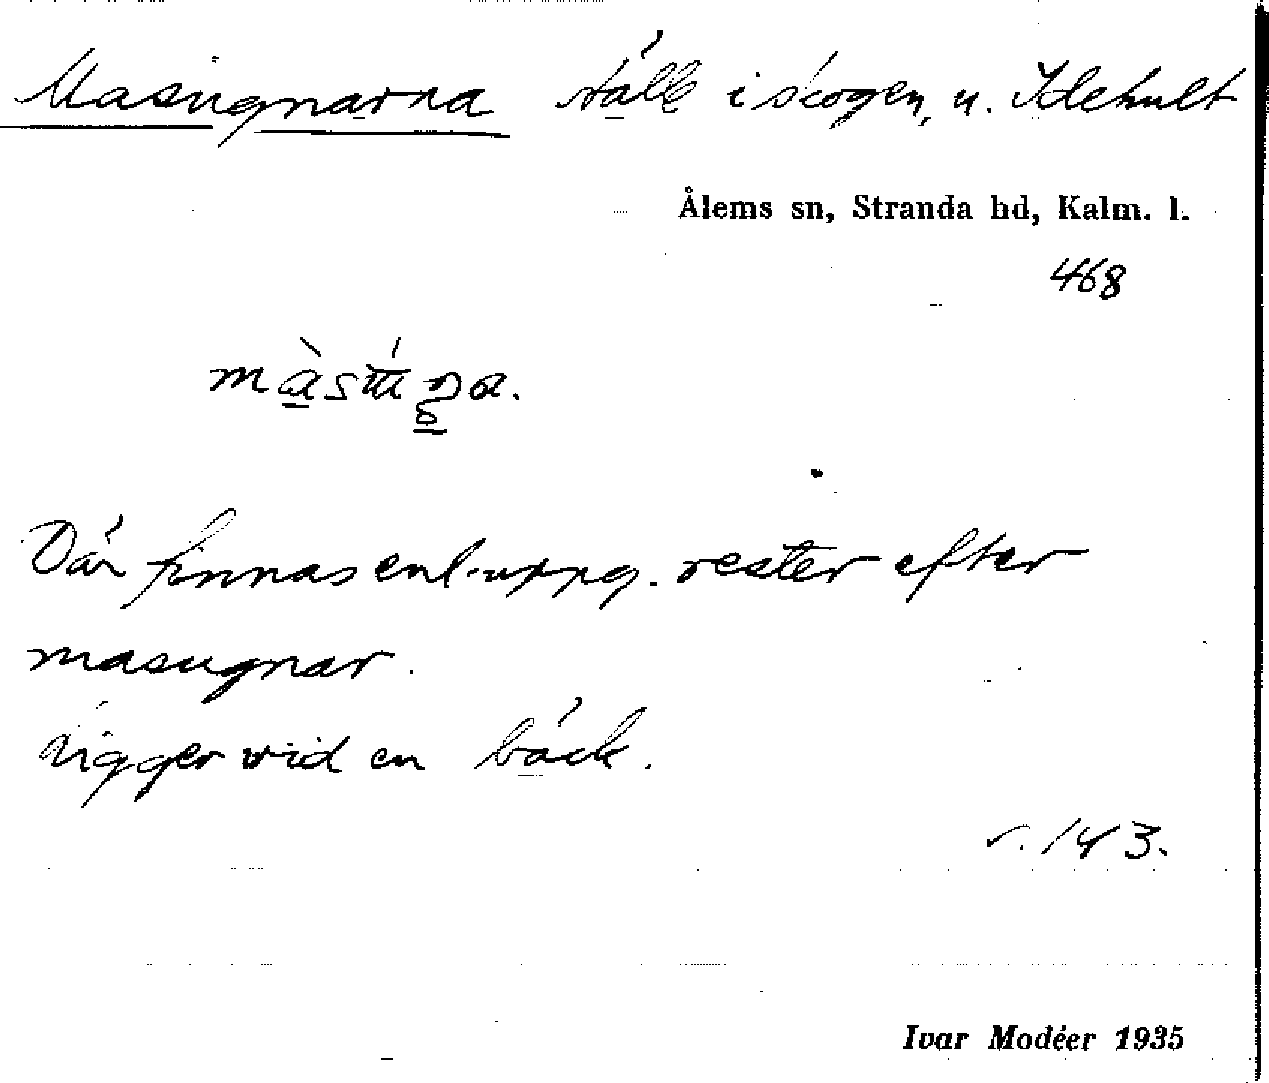 Masugnarna ställe i skogen, u. Idehult
Ålems sn, Stranda hd, Kalm. l.
468
Där finnas enl. uppg. rester efter
masugnar.
Ligger vid en bäck.
s. 143.
Ivar Modéer 1935